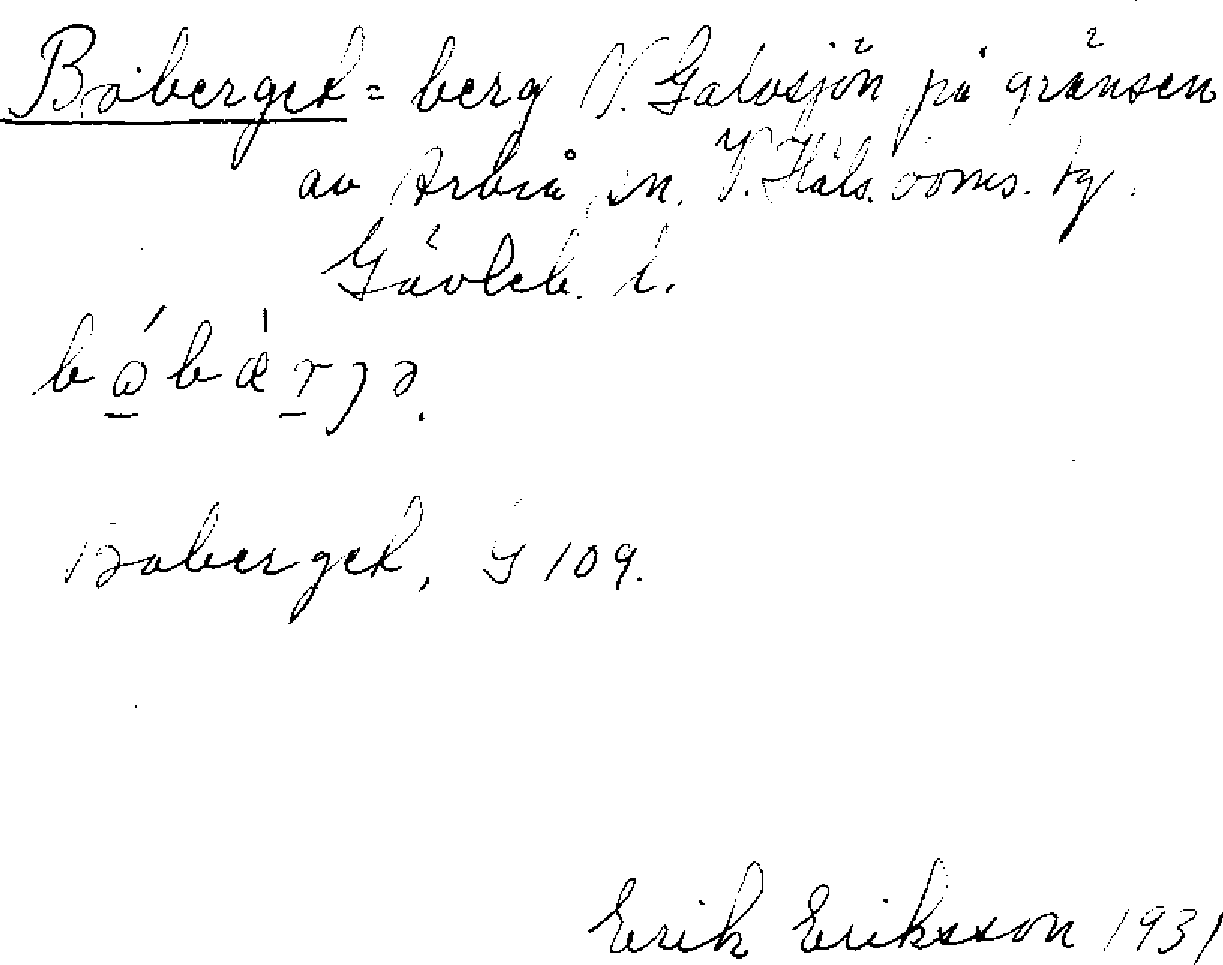 Boberget = berg N. Galvsjön på gränsen
av Arbrå m. V. Häls. doms. tg.
Gävleb. l.
bó̲bæ̀r̲jə.
Boberget, G 109.
Erik Eriksson 1931